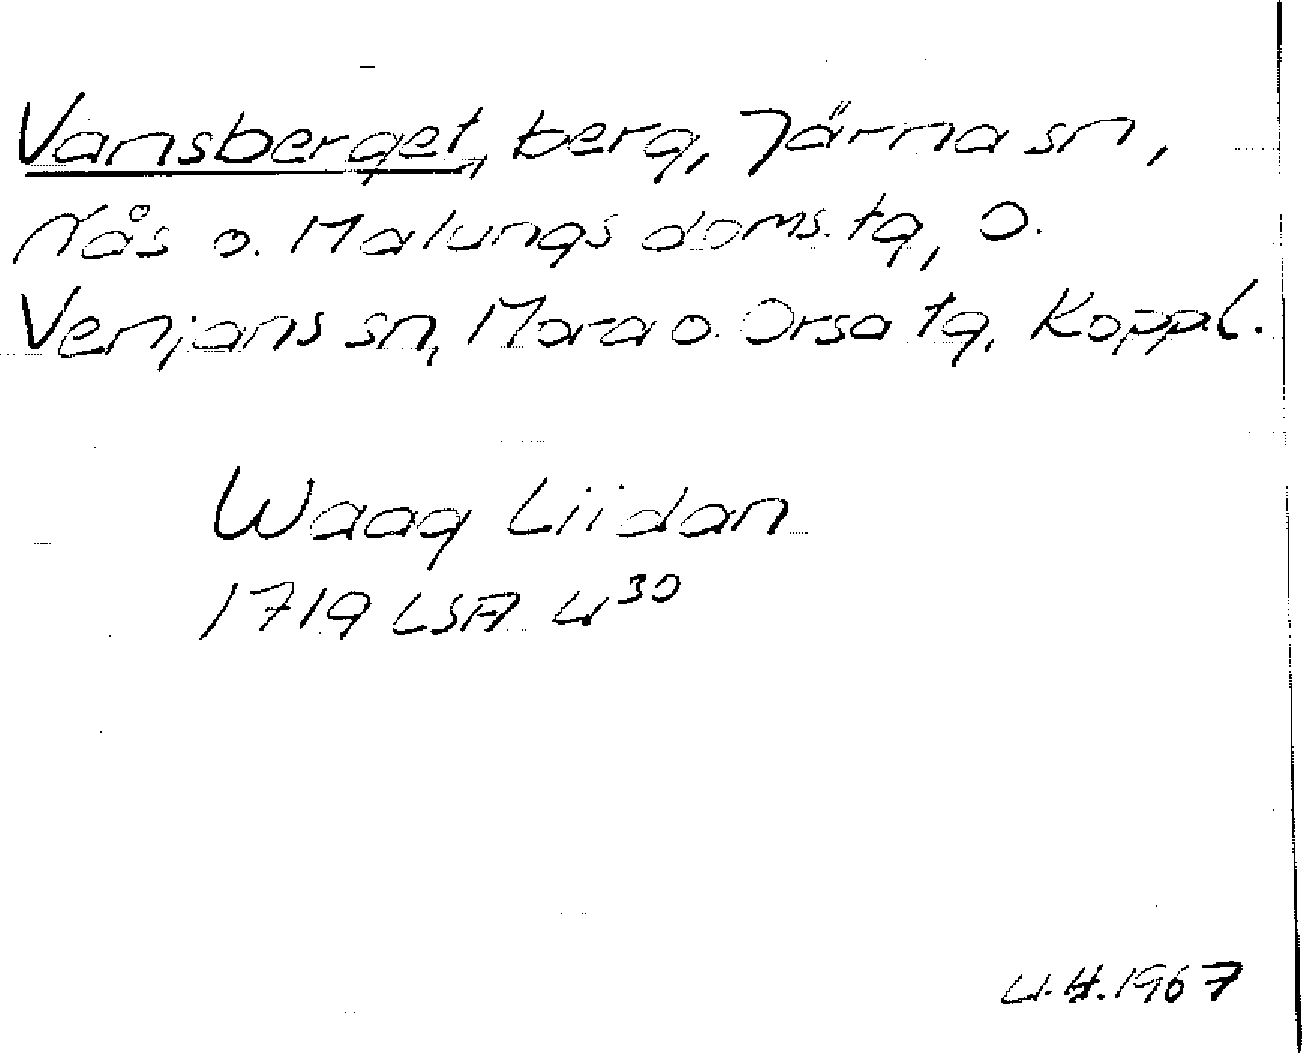 Vansberget, berg, Järna sn,
Nås o. Malungs doms. tg, o.
Venjans sn, Mora o. Orsa tg, Koppl.
Waag Liidan
1719 LSA U³⁰
U.H. 1967